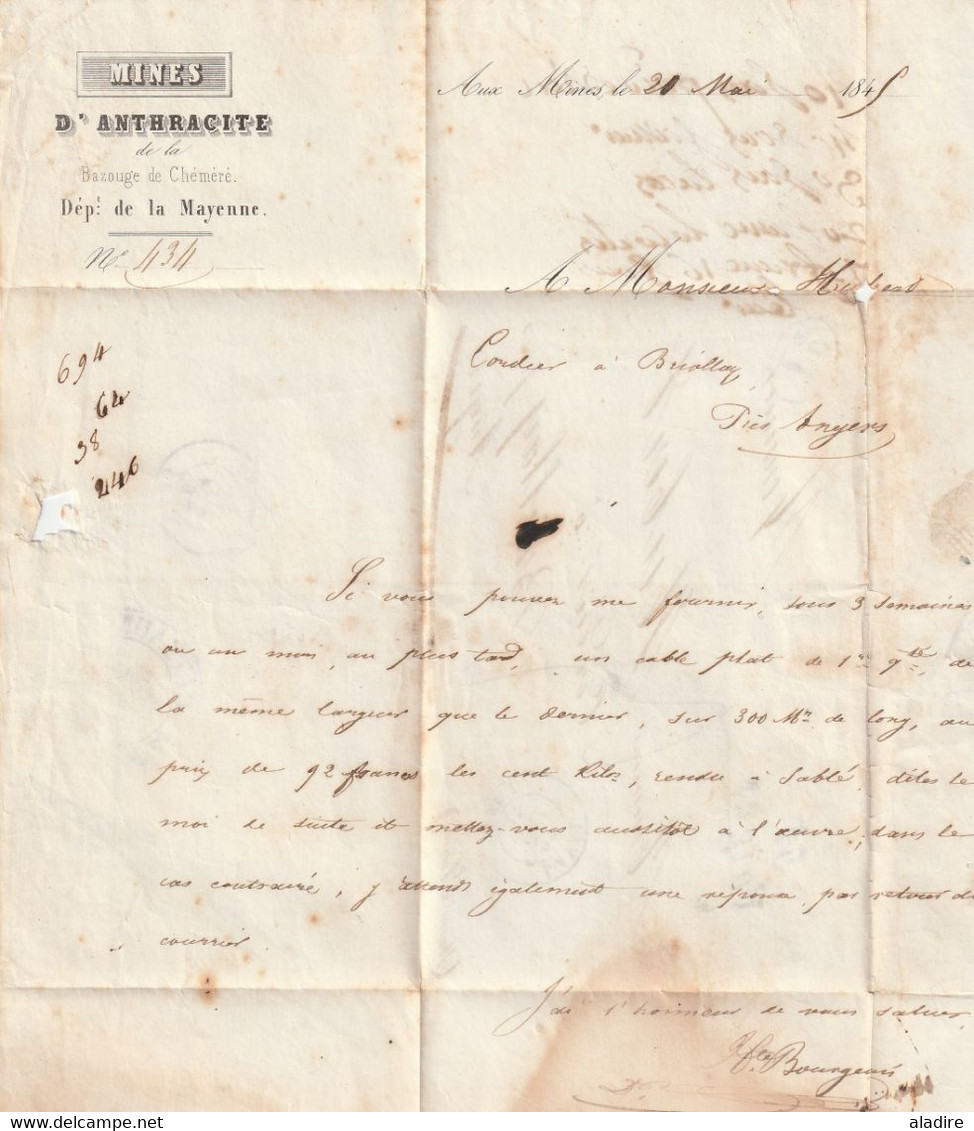 MINES
D'ANTHRACITE
de la
Bazouge de Chéméré.
Dép.t de la Mayenne.
N.o 434
Aux Mines, le 20 Mai 1845
A Monsieur
Cordier à Briollay
Près Angers
694
64
38
246
Si vous pouvez me fournir, sous 3 semaines
ou un mois, au plus tard, un cable plat de 1re qté, de
la même largeur que le dernier, sur 300 Mes de long, au
prix de 92 francs les cent Kilos, rendu à Sablé, dites le
moi de suite et mettez-vous aussitôt à l'œuvre; dans le
cas contraire, j'attends également une réponse par retour de
courrier.
J'ai l'honneur de vous saluer,
Bourgeois
aladire - delcampe.net